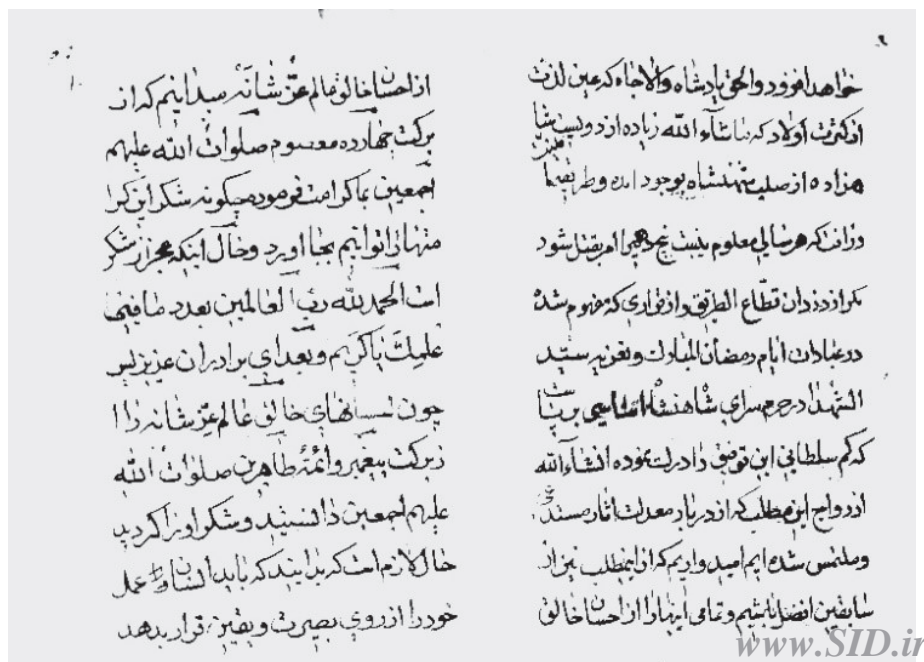 خواهد افزود والحق پادشاه والاجاه که عین لذت
از کثرت اولاد که ماشآء الله زیاده از دویست
هزاده از صلب شهنشاه بوجود امده و طریقه
درانت که هر سالی معلوم نیست پنج امر بقتل شود
مکر از دزدان قطّاع الطریق و از قراری که مفهوم شده
در عبادات ایام رمضان المبارک و تعزیه سیّد
الشهدا در حرم سرای شاهنشاه اساسی برپاست
که کم سلطانی این توفیق دادرک نموده انشاءالله
از رواج این مطلب که از دربار معدلت اثار
و ملتمس شده ایم امید داریم که از اینمطلب نیز از
سابقین افضل باشیم و تمامی اینها را از احسان خالق
از احسان خالق عالم عزّ شانه میدانیم که از
برکت چهارده معصوم صلوات الله علیهم
اجمعین بما کرامت فرموده چکونه شکر این کرا
متها توانیم بجا اورد و حال اینکه عجز از شکر
است الحمد لله ربّ العالمین بعدد ما فیها
علمک یا کریم و بعد ای برادران عزیز پس
چون احسانهای خالق عالم عزّ شانه را
ز برکت پیغمبر و ائمّهٔ طاهرین صلوات الله
علیهم اجمعین دانستید و شکر اورا کردید
حال لازم است که بدانید که باید انسان عمل
خود را از روی بصیرت و یقین قرار بدهد
www.SID.ir